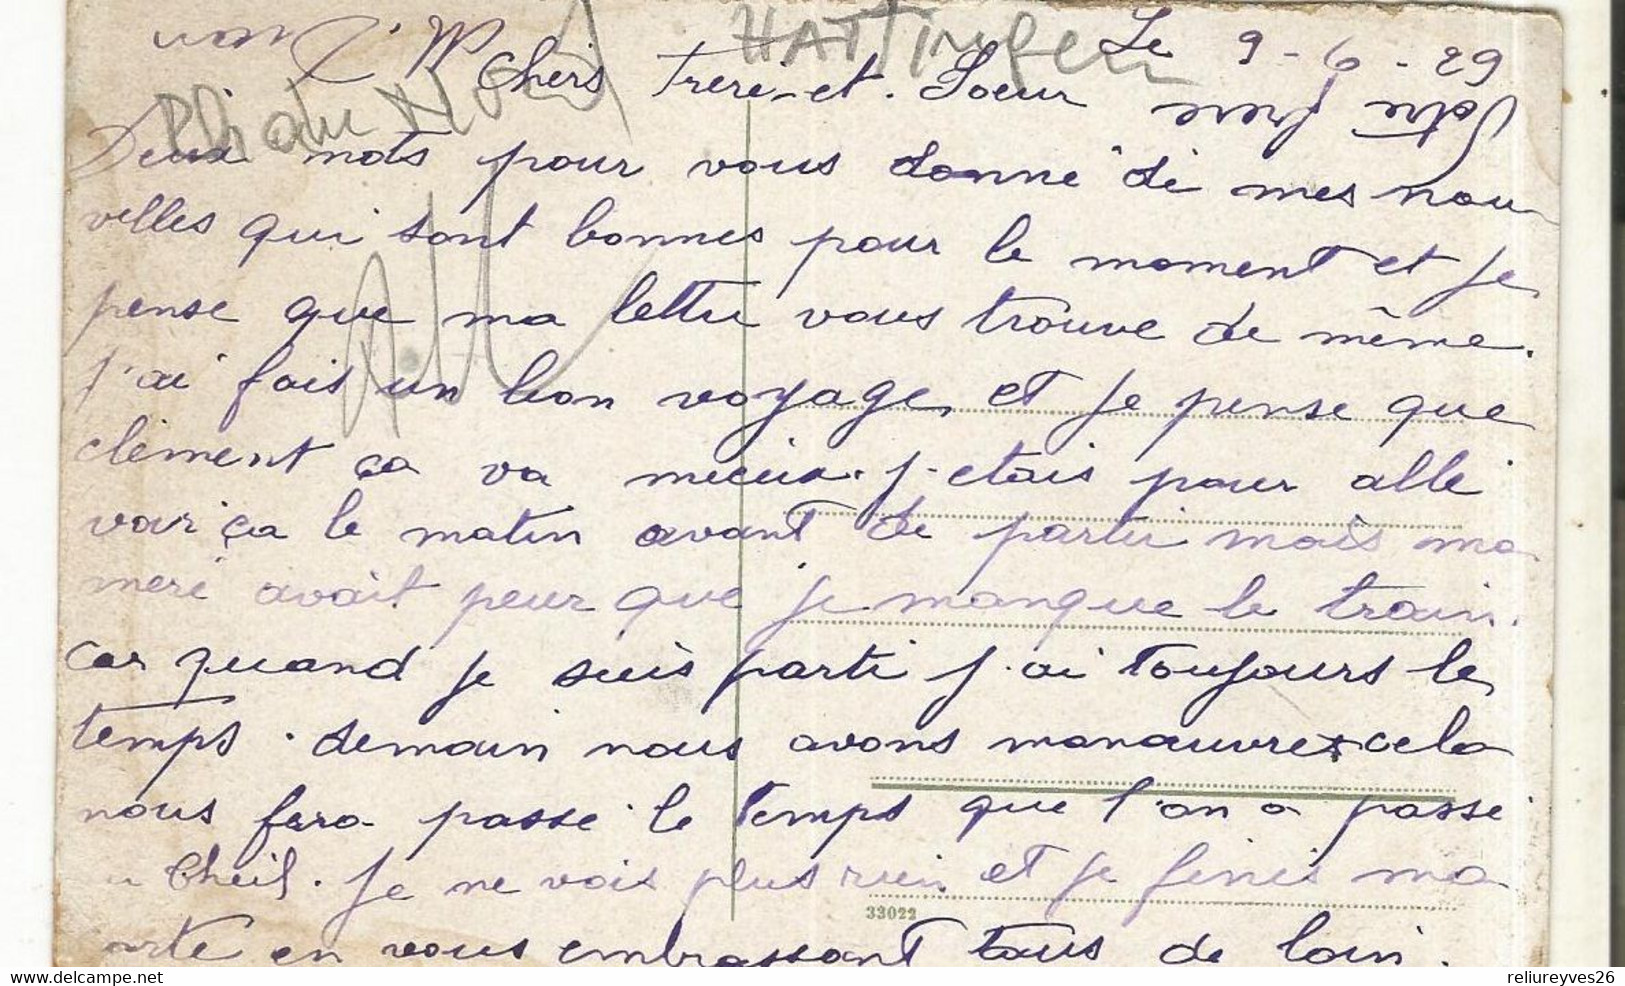 HATTINGEN
Le 9-6-29
Chers frere et Soeur
Votre frere
Deux mots pour vous donné dè mes nou-
velles qui sont bonnes pour le moment et je
pense que ma lettre vous trouve de même.
J'ai fais un bon voyage, et je pense que
clèment ça va mieux. j. etais pour allé
voir ça le matin avant de partir mais ma
merè avait peur que je manque le train.
car quand je suis parti j. ai toujours le
temps. demain nous avons manoeuvre cela
nous fera passé le temps que l'on a passé
Cheil. Je ne vois plus rien et je finis ma
carte en vous embrassant tous de loin.
33022
delcampe.net
reliureyves26